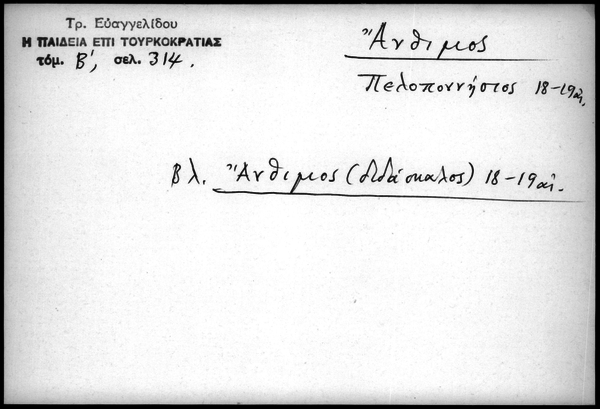 Τρ. Εὐαγγελίδου
Η ΠΑΙΔΕΙΑ ΕΠΙ ΤΟΥΡΚΟΚΡΑΤΙΑΣ
τόμ. Β', σελ. 314.
Ἄνθιμος
Πελοποννήσιος 18-19 αἰ.
Βλ. Ἄνθιμος (διδάσκαλος) 18-19 αἰ.